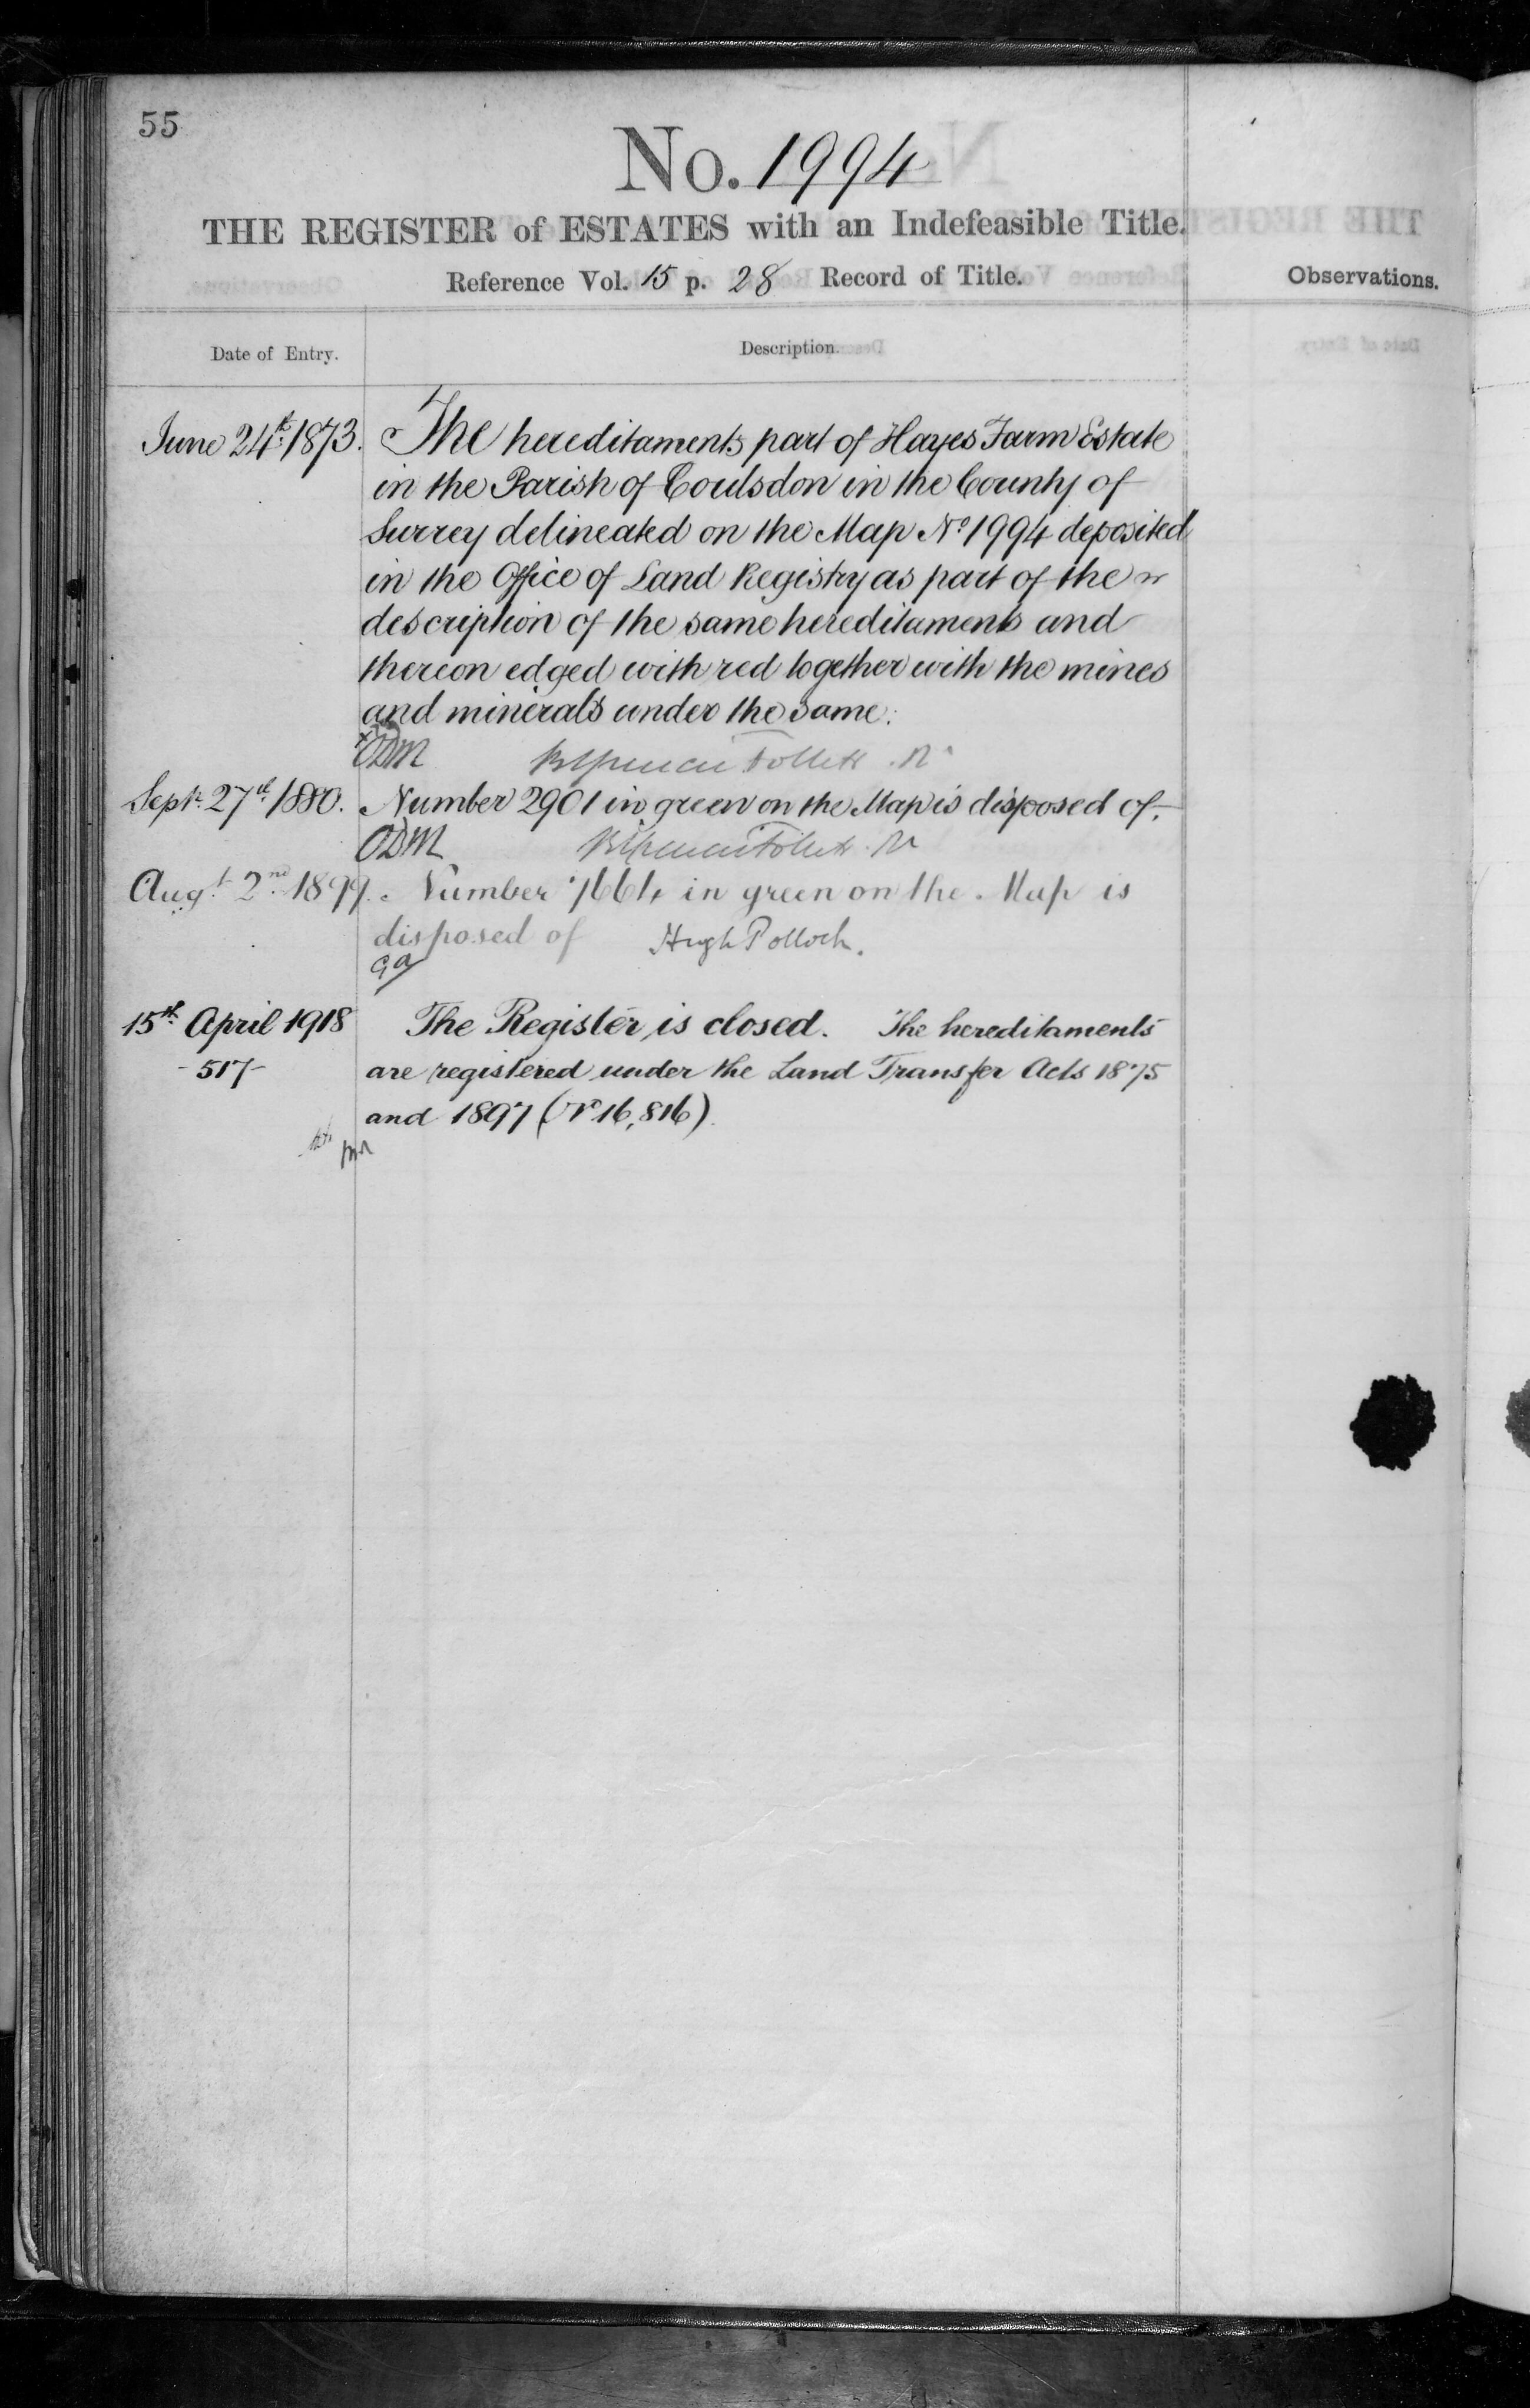 55
No. 1994
THE REGISTER of ESTATES with an Indefeasible Title.
Reference Vol. 15 p. 28 Record of Title.
Observations.
Date of Entry.
Description.
June 24th. 1873. The hereditaments part of Hayes Farm Estate
in the Parish of Coulsdon in the County of
Surrey delineated on the Map No 1994 deposited
in the Office of Land Registry as part of the
description of the same hereditaments and
thereon edged with red together with the mines
and minerals under the same.
ODM
Sept. 27th. 1880. Number 2901 in green on the Map is disposed of.
ODM
Augt. 2nd. 1899. Number 7664 in green on the Map is
disposed of Hugh Pollock.
15th. April 1918 The Register is closed. The hereditaments
-517- are registered under the Land Transfer Acts 1875
and 1897 (No 16,816).